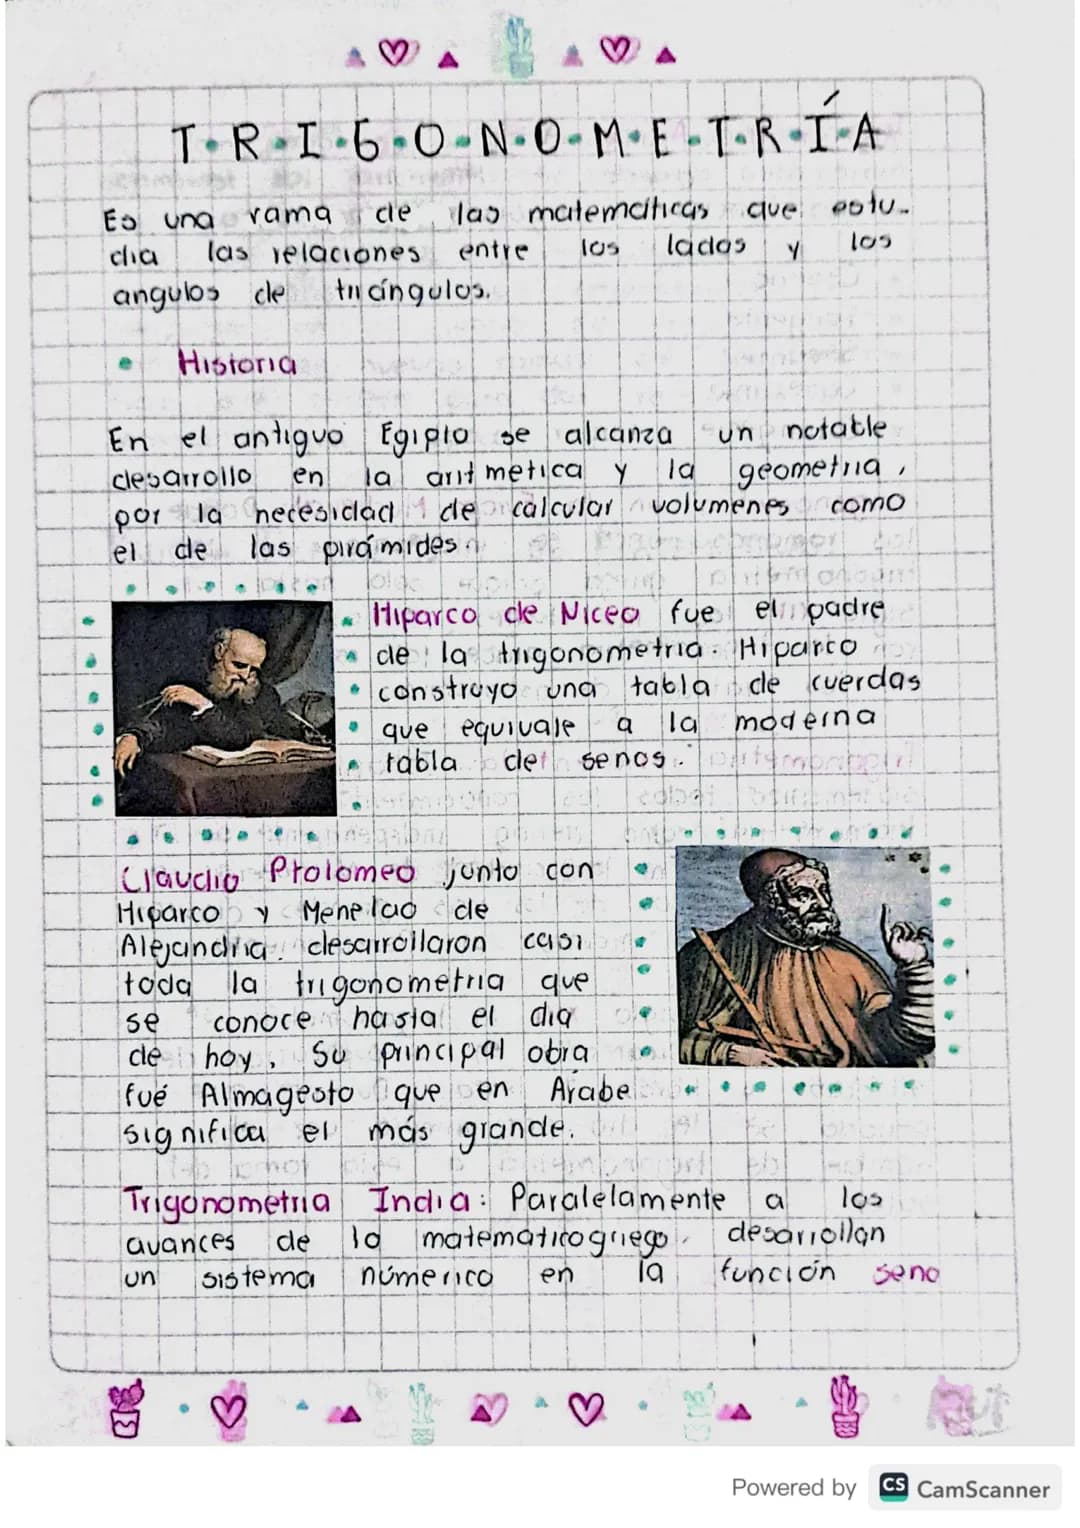 T·R·I·G·O·N·O·M·E·T·R·Í·A
Es una rama de las matemáticas que estu-
dia las relaciones entre los lados y los
angulos de triángulos.
• Historia
En el antiguo Egipto se alcanza un notable
desarrollo en la aritmetica y la geometria,
por la necesidad de calcular volumenes como
el de las pirámides.
Hiparco de Niceo fue el padre
de la trigonometria. Hiparco
construyo una tabla de cuerdas
que equivale a la moderna
tabla de senos.
Claudio Ptolomeo junto con
Hiparco y Menelao de
Alejandria. desarrollaron casi
toda la trigonometria que
se conoce hasta el dia
de hoy. Su principal obra
fué Almagesto que en Arabe
significa el más grande.
Trigonometria India: Paralelamente a los
avances de lo matematico griego. desarrollan
un sistema númerico en la función seno
Powered by CS CamScanner